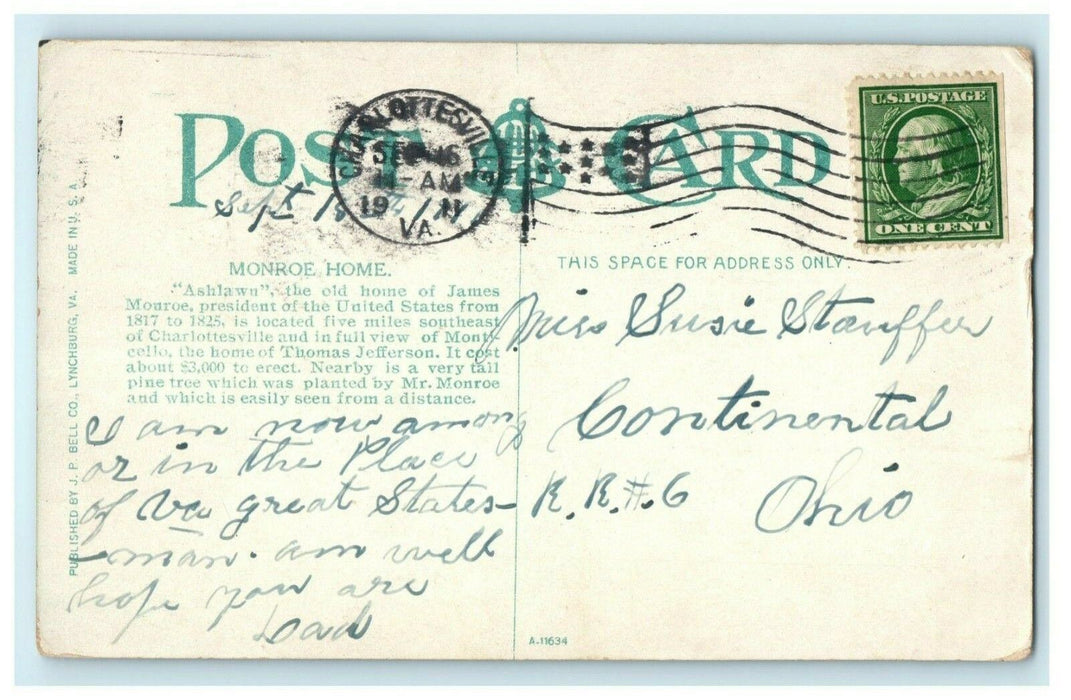 POST CARD
U.S. POSTAGE
ONE CENT
CHARLOTTESVILLE
SEP 16
11-AM
19 11
VA.
Sept
MONROE HOME.
"Ashlawn", the old home of James
Monroe, president of the United States from
1817 to 1825, is located five miles southeast
of Charlottesville and in full view of Monti-
cello, the home of Thomas Jefferson. It cost
about $3,000 to erect. Nearby is a very tall
pine tree which was planted by Mr. Monroe
and which is easily seen from a distance.
I am now among
or in the Place
of Va great States-
-man. am well
hope you are
Dad
THIS SPACE FOR ADDRESS ONLY.
Miss Susie Stauffer
Continental
R.R.#.6 Ohio
PUBLISHED BY J. P. BELL CO., LYNCHBURG, VA. MADE IN U. S. A
A-11634